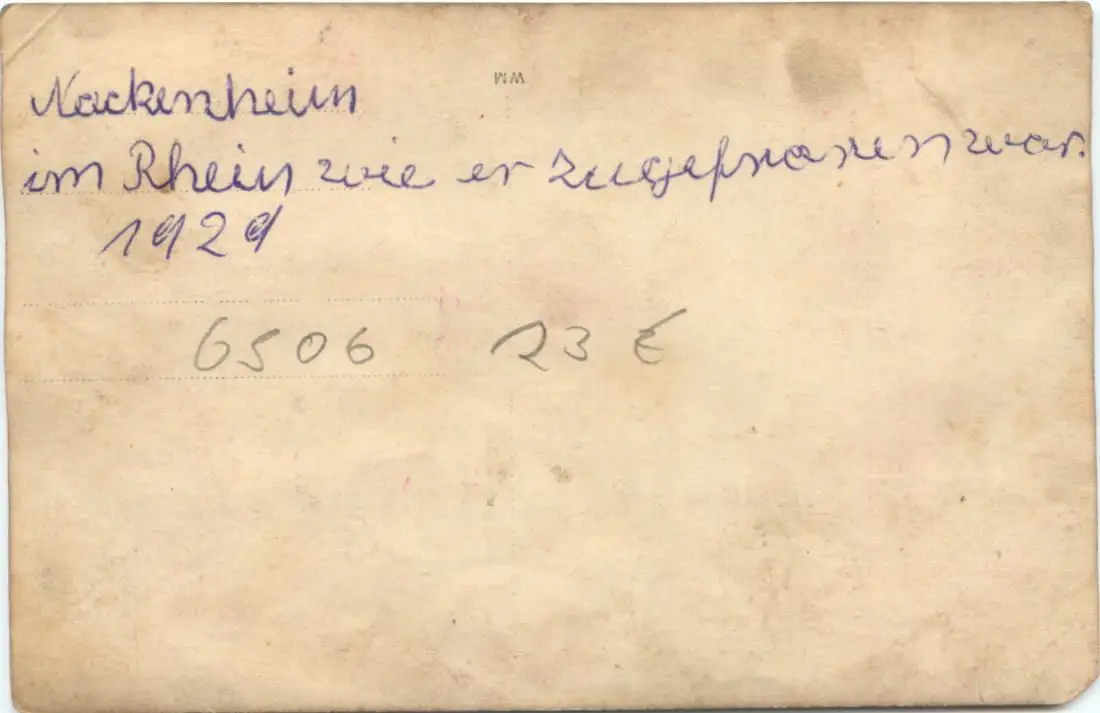 Nackenheim
im Rhein wie er zugefroren war.
1929
6506 23 €
WM